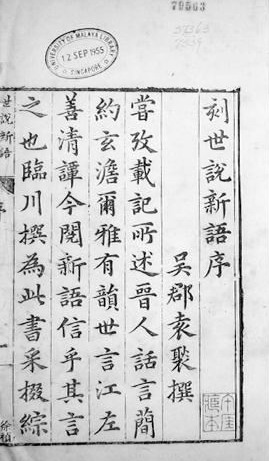 UNIVERSITY OF MALAYA LIBRARY
12 SEP 1955
SINGAPORE
刻世說新語序
吳郡袁褧撰
嘗攷載記所述晉人話言簡
約玄澹爾雅有韻世言江左
善清譚今閱新語信乎其言
之也臨川撰為此書采掇綜
世說新語
序